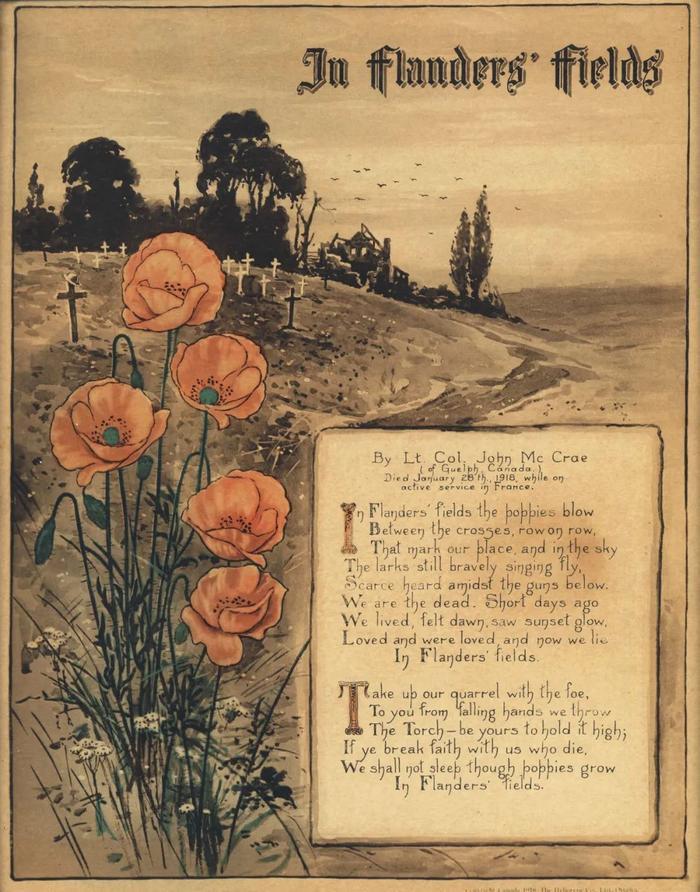 In Flanders' Fields
By Lt. Col. John Mc Crae
(of Guelph, Canada.)
Died January 28'th., 1918, while on
active service in France.
In Flanders' fields the poppies blow
Between the crosses, row on row,
That mark our place, and in the sky
The larks still bravely singing fly,
Scarce heard amidst the guns below.
We are the dead. Short days ago
We lived, felt dawn, saw sunset glow,
Loved and were loved, and now we lie
In Flanders' fields.
Take up our quarrel with the foe,
To you from falling hands we throw
The Torch—be yours to hold it high;
If ye break faith with us who die,
We shall not sleep though poppies grow
In Flanders' fields.